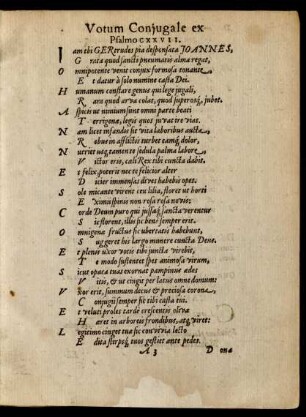 Votum Conjugale ex
Psalmo CXXVII.
I am tibi GERtrudes pia desponsata JOANNES,
G rata quod sancti pneumatis alma reget,
O mnipotente venit conjux formosa tonante
E t datur à solo numine casta Dei.
H umanum constare genus qui lege jugali,
R aro quod arva colat, quod superosq́, jubet.
A spicit ut nimium sunt omni parte beati
T errigenæ, legis quos pia tre vias.
N am licet infandis sit vita laboribus aucta,
R obur in afflictis turbet eamq́ dolor,
N utriet usq; tamen te sedula palma labore,
V ictor eris, cœli Rex tibi cuncta dabit.
E t felix poteris nec te felicior alter
D icier immensas dives habebis opes.
S ole micante virent ceu lilia, flores ut horti
E ximius spinis non rosa rosa novis:
C orde Deum puro qui jussaq́, sancta verentur
S ic florent, illis sic bene semper erit.
O mnigena fructus sic ubertatis habebunt,
S ug geret his largo munere cuncta Deus.
E t plenè uxor votis tibi sancta virebit,
T e modò sustentet spes animosa virum,
S icut opaca tuas exornat pampinus ædes
V itis, & ut cingit per latus omne domum:
V xor erit, summum decus & preciosa corona,
C onjugii semper sit tibi casta tui.
E t veluti proles tardè crescentis olivæ
H æret in arboreis frondibus, atq́; viret:
L egitimo cinget tua sic convivia lecto
E dita stirpsq́; tuos gestiet ante pedes.
A 3 D ona